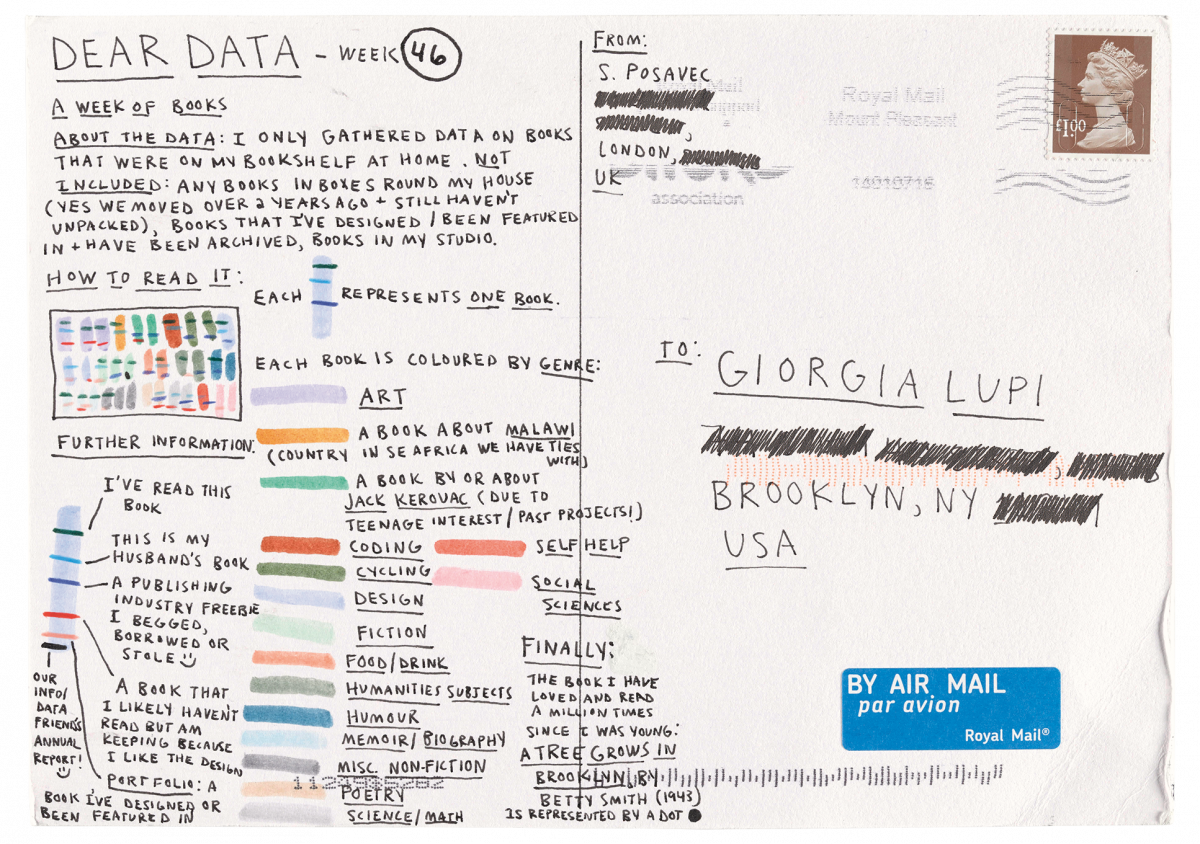 DEAR DATA - WEEK 46
A WEEK OF BOOKS
ABOUT THE DATA: I ONLY GATHERED DATA ON BOOKS
THAT WERE ON MY BOOKSHELF AT HOME. NOT
INCLUDED: ANY BOOKS IN BOXES ROUND MY HOUSE
(YES WE MOVED OVER 2 YEARS AGO + STILL HAVEN'T
UNPACKED), BOOKS THAT I'VE DESIGNED / BEEN FEATURED
IN + HAVE BEEN ARCHIVED, BOOKS IN MY STUDIO.
HOW TO READ IT:
EACH REPRESENTS ONE BOOK.
EACH BOOK IS COLOURED BY GENRE:
ART
A BOOK ABOUT MALAWI
(COUNTRY IN SE AFRICA WE HAVE TIES
WITH)
A BOOK BY OR ABOUT
JACK KEROUAC (DUE TO
TEENAGE INTEREST / PAST PROJECTS!)
CODING
CYCLING
DESIGN
FICTION
FOOD/DRINK
HUMANITIES SUBJECTS
HUMOUR
MEMOIR/BIOGRAPHY
MISC. NON-FICTION
POETRY
SCIENCE/MATH
SELF HELP
SOCIAL
SCIENCES
FURTHER INFORMATION:
I'VE READ THIS
BOOK
THIS IS MY
HUSBAND'S BOOK
A PUBLISHING
INDUSTRY FREEBIE
I BEGGED,
BORROWED OR
STOLE
A BOOK THAT
I LIKELY HAVEN'T
READ BUT AM
KEEPING BECAUSE
I LIKE THE DESIGN
PORTFOLIO: A
BOOK I'VE DESIGNED OR
BEEN FEATURED IN
OUR
INFO/
DATA
FRIENDS
ANNUAL
REPORT!
FINALLY:
THE BOOK I HAVE
LOVED AND READ
A MILLION TIMES
SINCE I WAS YOUNG:
A TREE GROWS IN
BROOKLYN, BY
BETTY SMITH (1943)
IS REPRESENTED BY A DOT
FROM:
S. POSAVEC
LONDON,
UK
association
Royal Mail
Mount Pleasant
£1.00
TO:
GIORGIA LUPI
BROOKLYN, NY
USA
BY AIR MAIL
par avion
Royal Mail®